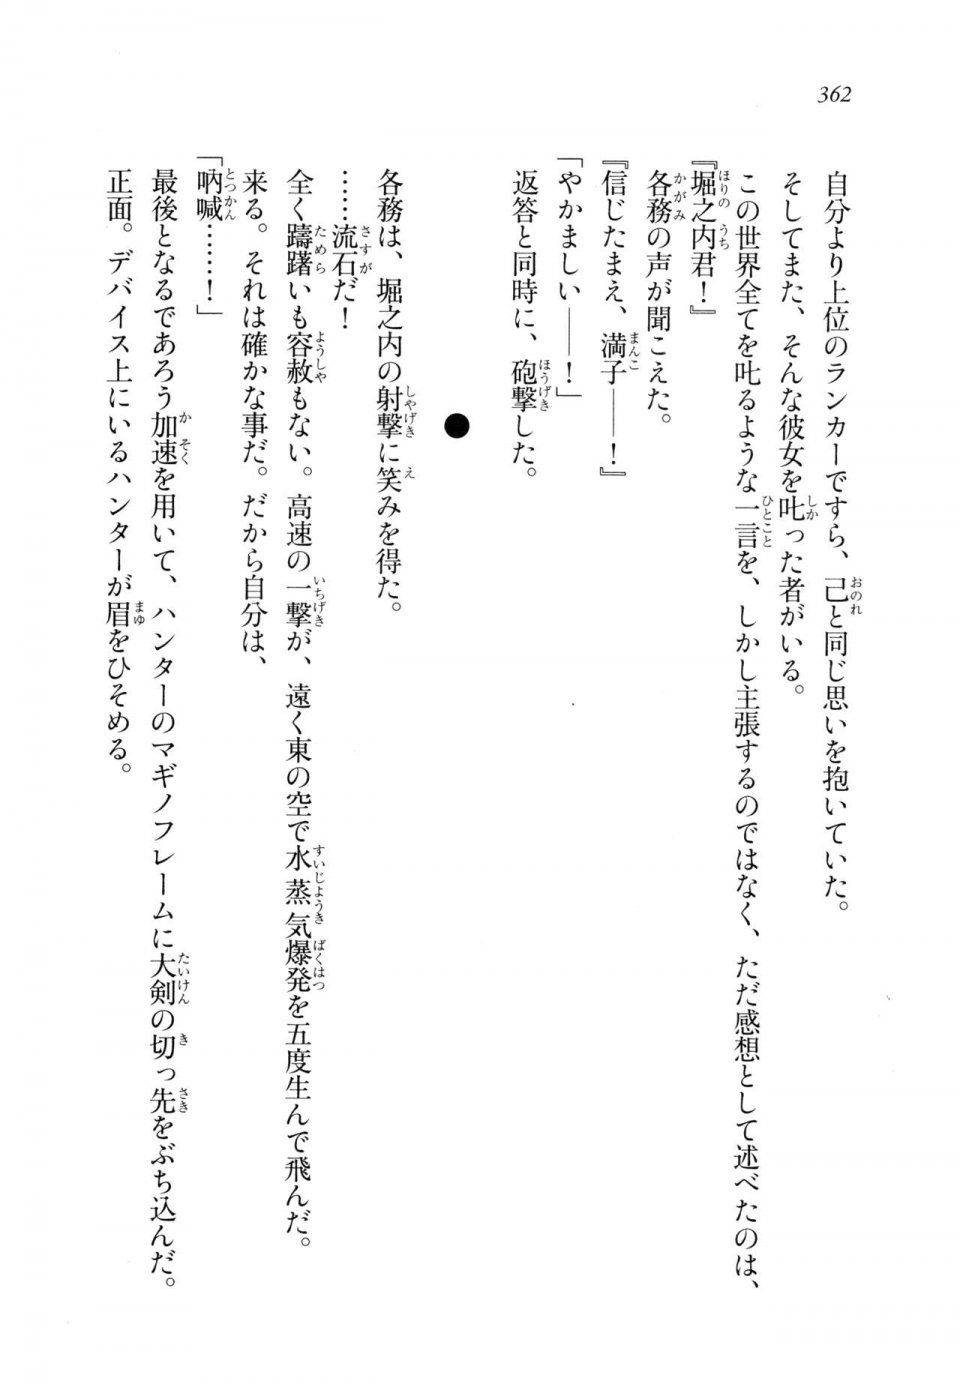 362
自分より上位のランカーですら、己と同じ思いを抱いていた。
そしてまた、そんな彼女を叱った者がいる。
この世界全てを叱るような一言を、しかし主張するのではなく、ただ感想として述べたのは、
『堀之内君！』
各務の声が聞こえた。
『信じたまえ、満子――！』
「やかましい――！」
返答と同時に、砲撃した。
●
各務は、堀之内の射撃に笑みを得た。
……流石だ！
全く躊躇いも容赦もない。高速の一撃が、遠く東の空で水蒸気爆発を五度生んで飛んだ。
来る。それは確かな事だ。だから自分は、
「吶喊……！」
最後となるであろう加速を用いて、ハンターのマギノフレームに大剣の切っ先をぶち込んだ。
正面。デバイス上にいるハンターが眉をひそめる。